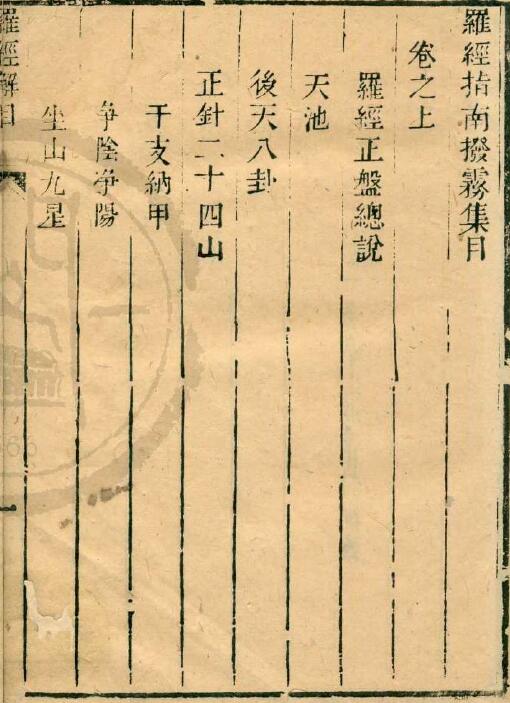 羅經指南撥霧集目
卷之上
羅經正盤總說
天池
後天八卦
正針二十四山
干支納甲
争陰争陽
坐山九星
羅經解目
一